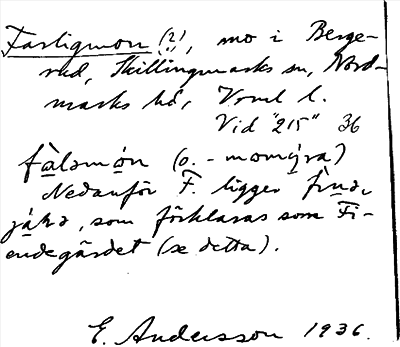 Farligmon (?), mo i Berge-
rud, Skillingmarks sn, Nord-
marks hd, Vrml l.
Vid "215" 36
(o. - momýra)
Nedanför F. ligger
, som förklaras som Fi-
endegärdet (se detta).
E. Andersson 1936.